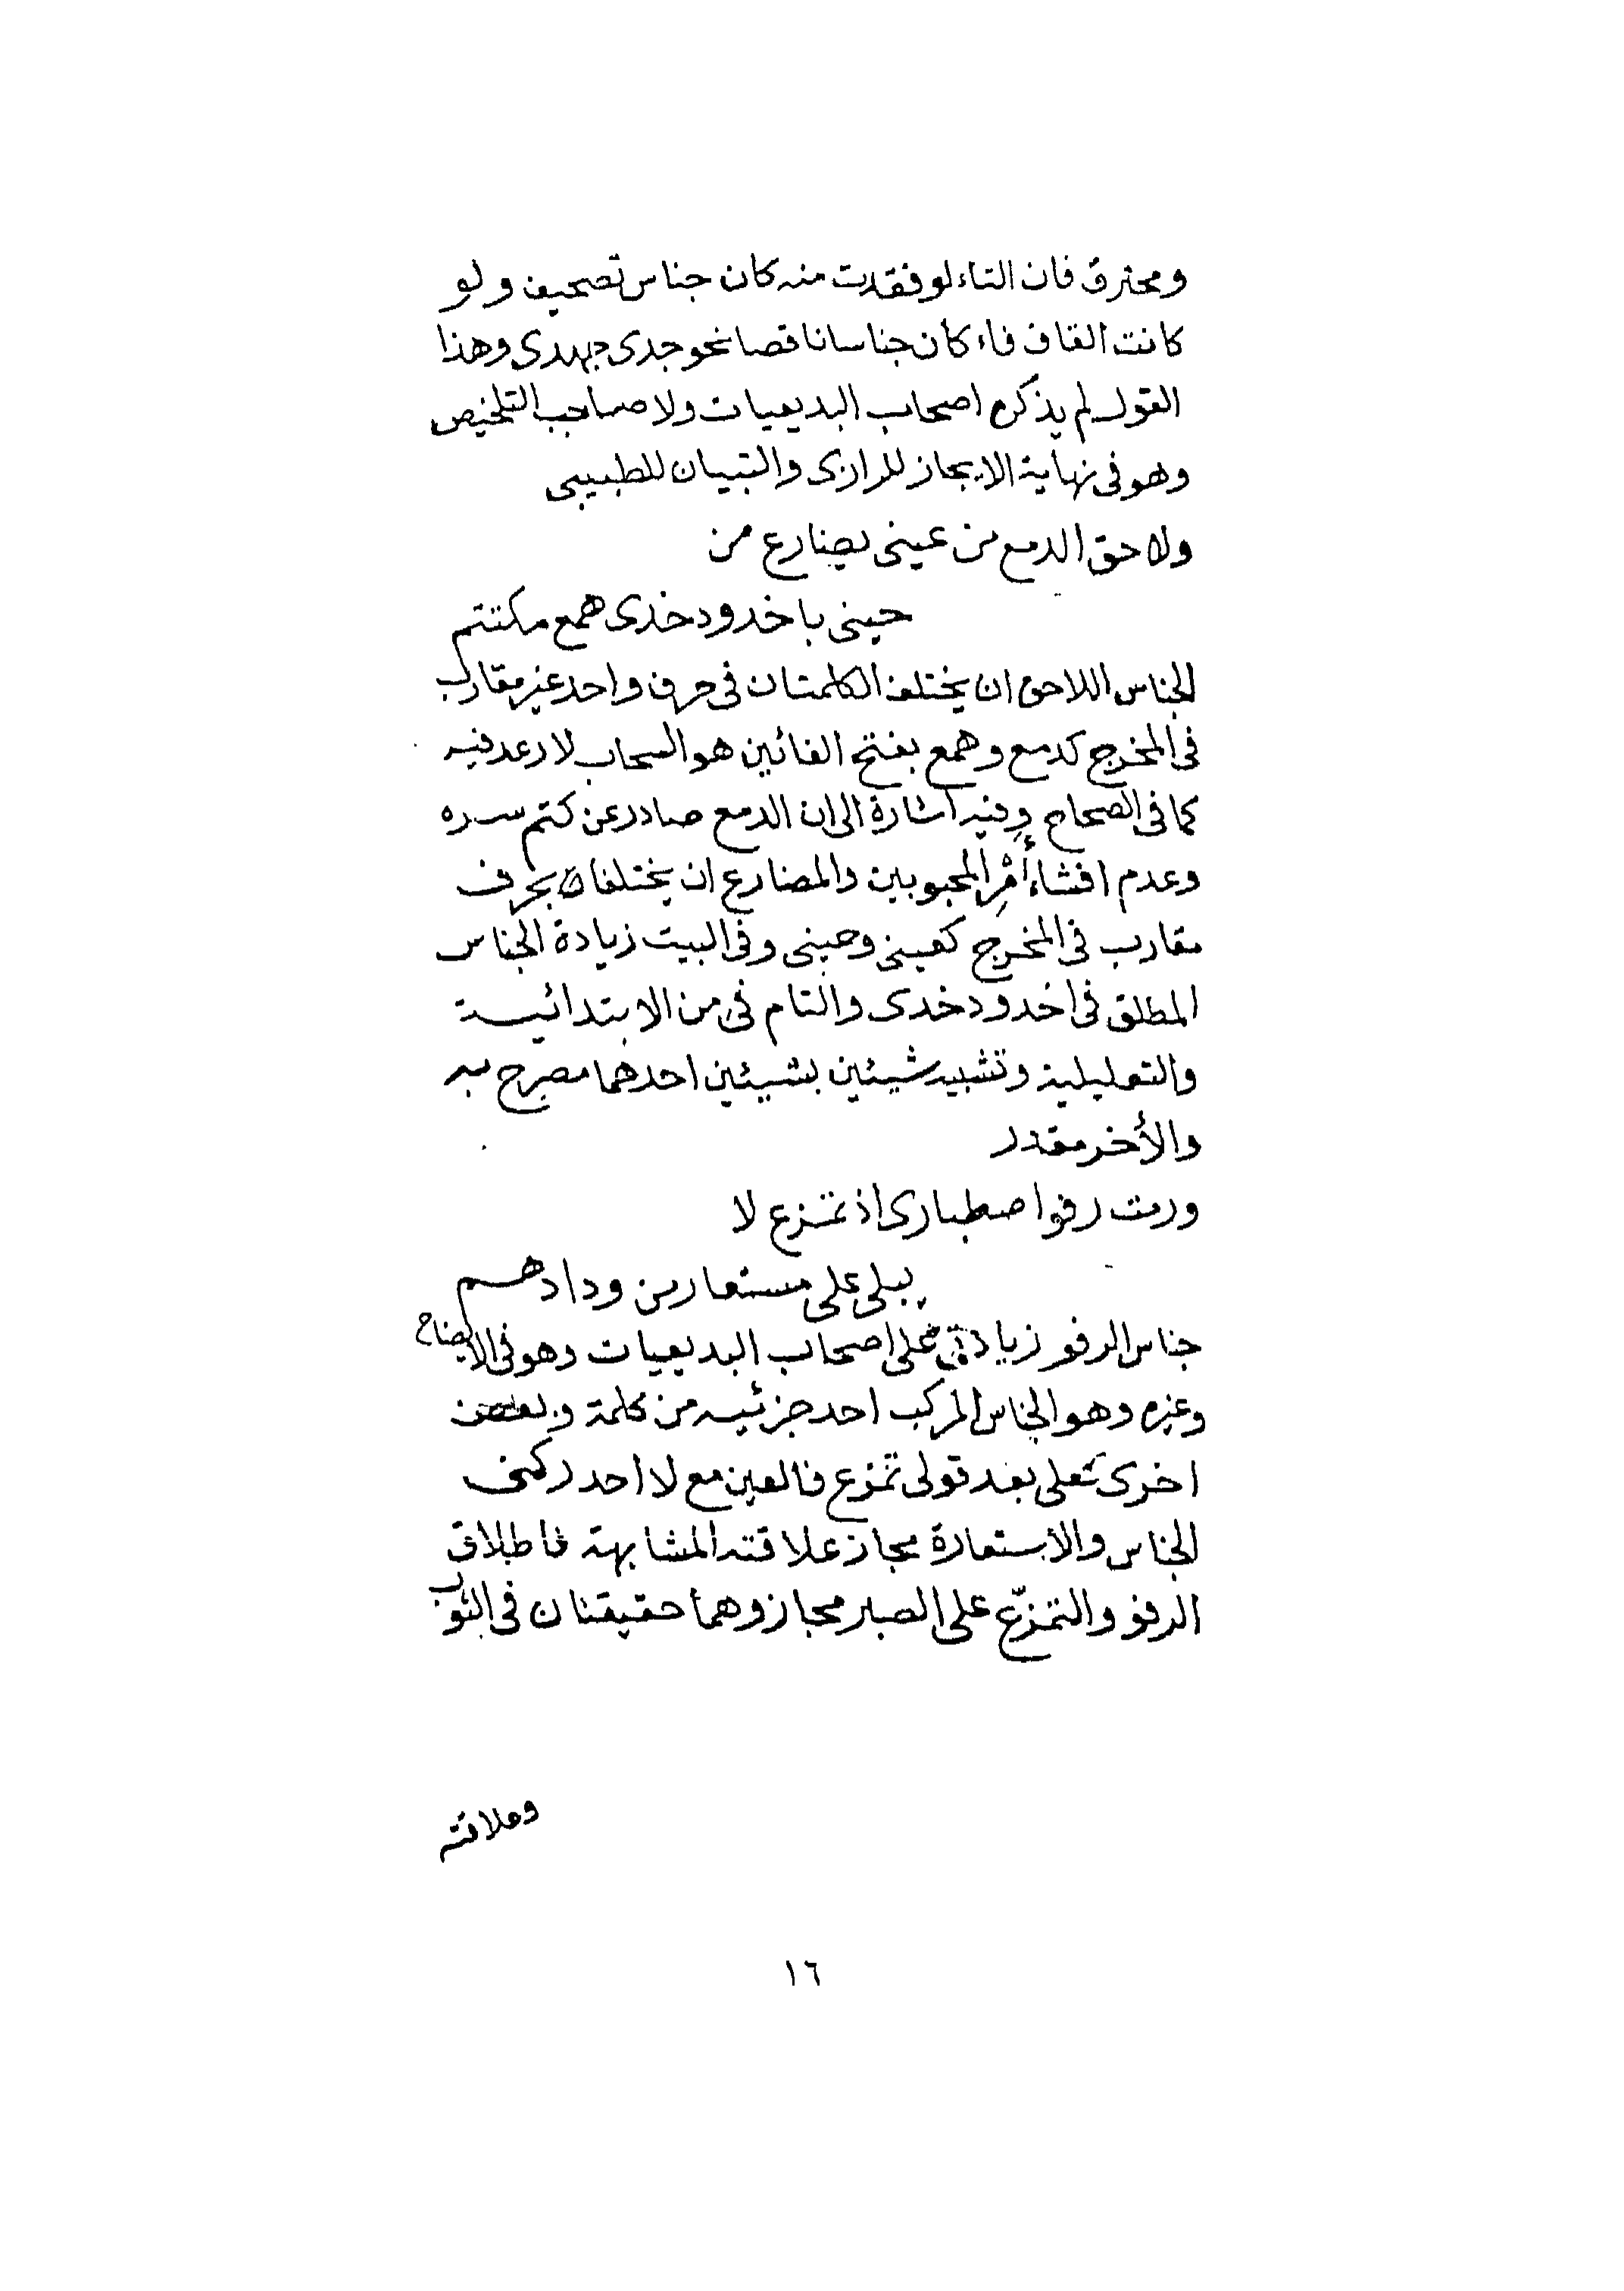 ومحترق فان التاء لو فقدت منه كان جناس تصحيف ولو
كانت القاف فاء كان جناسا ناقصا نحو جدى جهدى وهذا
القول لم يذكره اصحاب البديعيات ولا صاحب التلخيص
وهو فى نهاية الايجاز للرازى والتبيان للطيبى
ولاحق الدمع من عينى يضارع من
حينى باخدود خدى همع مكتتم
الجناس اللاحق ان يختلف الكلمتان فى حرف واحد غير مقارب
فى المخرج كدمع وهمع بفتح الفائين هو السحاب لا رعد فيه
كما فى الصحاح وفيه اشارة الى ان الدمع صادر عن كتم سره
وعدم افشاء أمْرِ المحبوبين والمضارع ان يختلفا بحرف
مقارب فى المخرج كعينى وحينى وفى البيت زيادة الجناس
المطلق فى اخدود خدى والتام فى من الابتدائية
والتعليلية وتشبيه شيئين بشيئين احدهما مصرح به
والأخر مقدر
ورمت رفو اصطبارى اذ تمزع لا
يبلى على مستعار من ودادهم
جناس الرفو زيادتى على اصحاب البديعيات وهو فى الايضاح
وغيره وهو الجناس المركب احد جزئيه من كلمة وبعض
اخرى كعلى بعد قولى تمزع فالعين مع لا احد ركنى
الجناس والاستعارة مجاز علاقته المشابهة فاطلاق
الرفو والتمزّع على الصبر مجاز وهما حقيقتان فى الثوب
وعلاقته
١٦